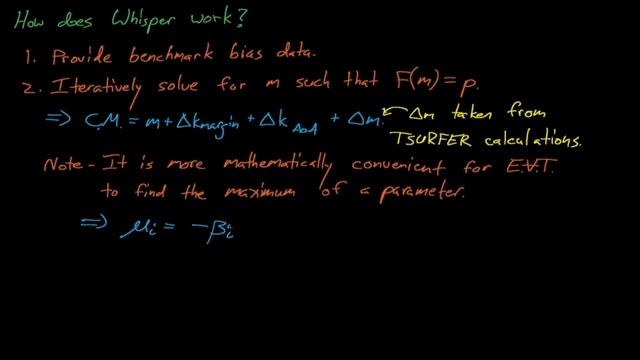 How does Whisper work?
1. Provide benchmark bias data.
2. Iteratively solve for m such that F(m) = p.
⇒ C.M. = m + Δkmargin + Δk AoA + Δm.
Δm taken from
TSURFER calculations.
Note - It is more mathematically convenient for E.V.T.
to find the maximum of a parameter.
⇒ μi = -βi